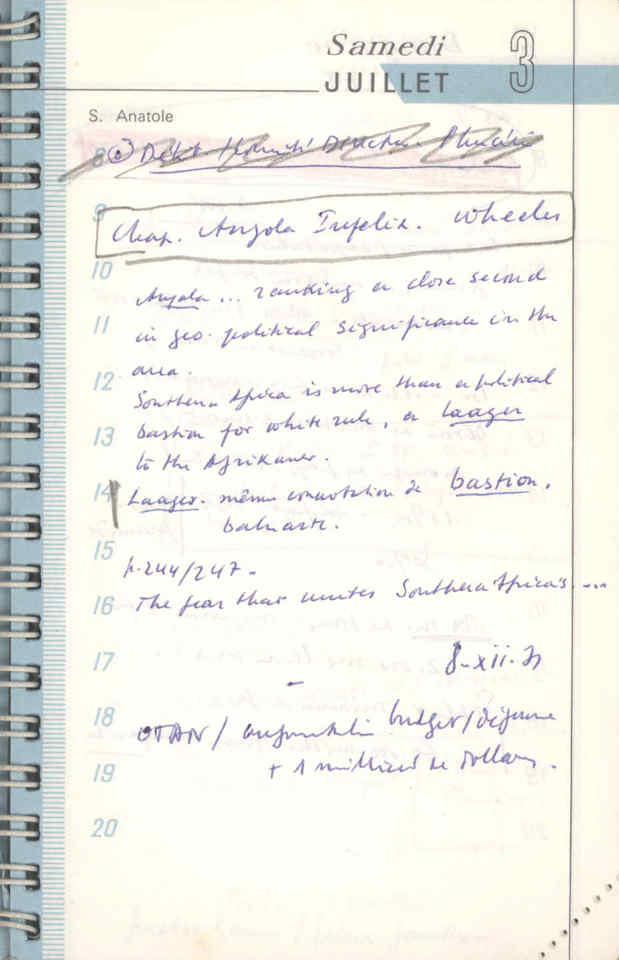 Samedi 3
JUILLET
S. Anatole
8
9 Chap. Angola Infelix. Wheeler
10
Angola ... ranking a close second
11 in geo-political significance in the
area.
12 Southern Africa is more than a political
13 bastion for white rule, a laager
to the Afrikaner.
14 Laager. même connotation de bastion.
baluarte.
15
p. 244/247 -
16 The fear that unites Southern Africa's ...
17 8-xii-71
-
18 OTAN / budget/défense
19 + 1 milliard de dollars.
20